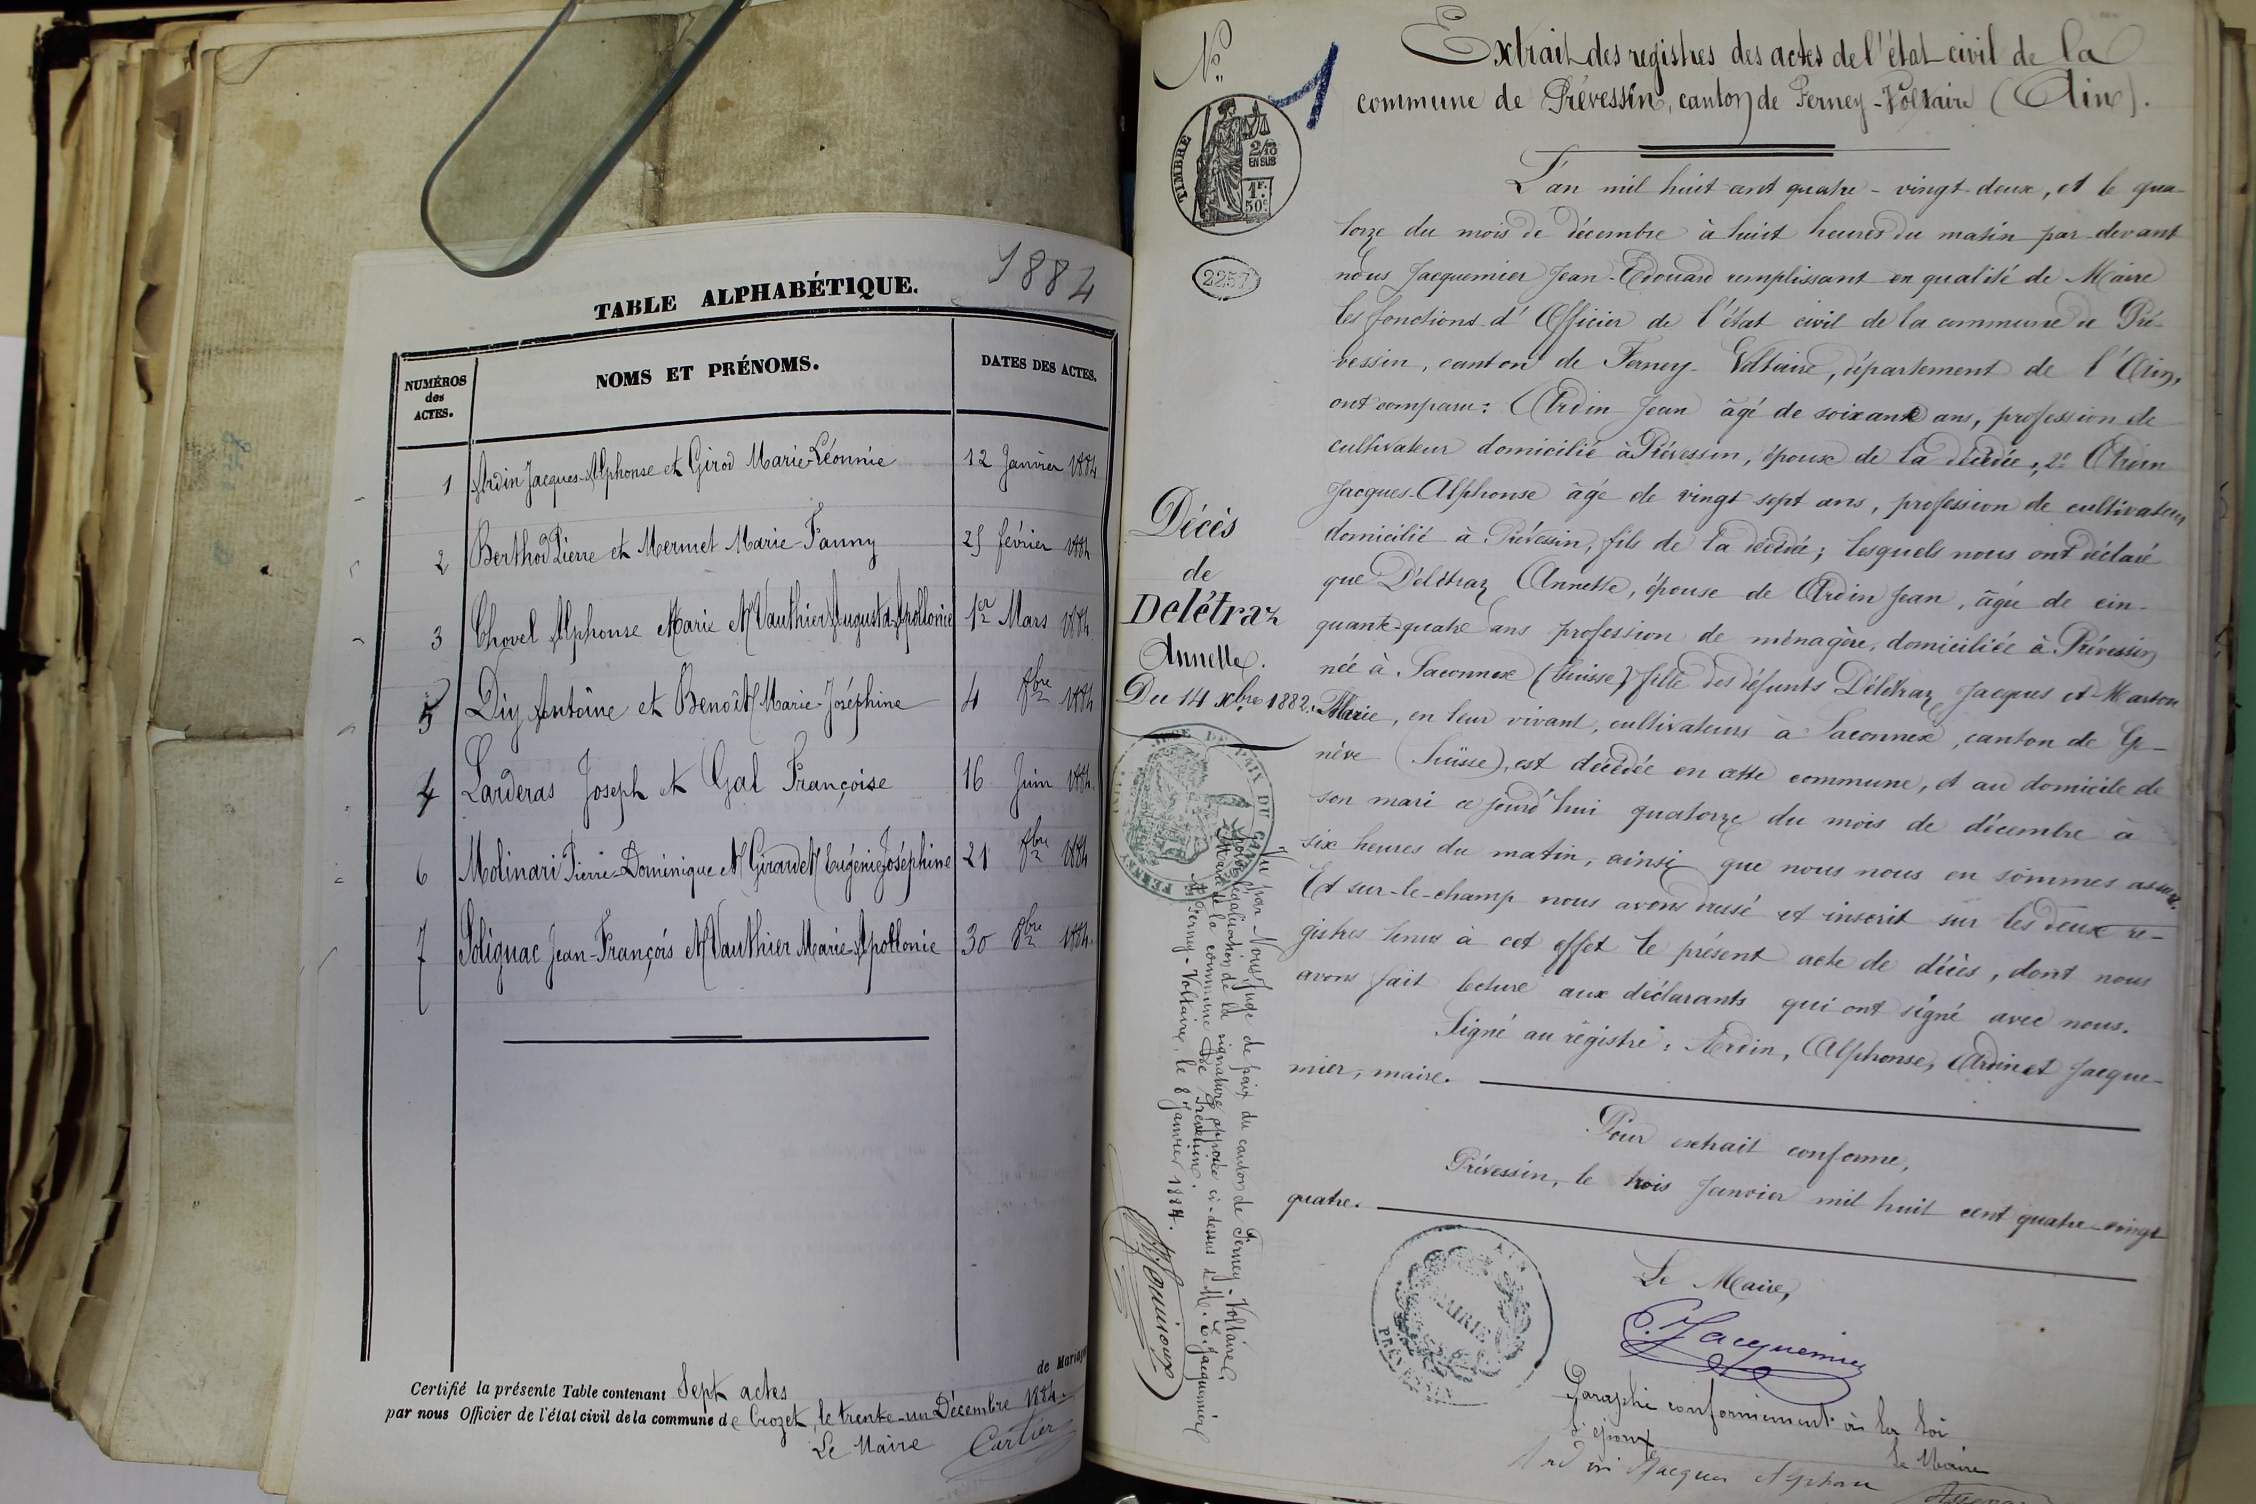 1884
TABLE ALPHABÉTIQUE.
NUMÉROS des ACTES.
NOMS ET PRÉNOMS.
DATES DES ACTES.
1 Ardin Jacques-Alphonse et Girod Marie-Léonnie 12 Janvier 1884
2 Berthod Pierre et Mermet Marie-Fanny 25 février 1884
3 Chovel Alphonse Marie et Vauthier Augusta-Apollonie 1er Mars 1884.
5 Diy Antoine et Benoît Marie-Joséphine 4 8bre 1884
4 Larderas Joseph et Gal Françoise 16 Juin 1884.
6 Molinari Pierre-Dominique et Girardet Eugénie Joséphine 21 8bre 1884
7 Solignac Jean-François et Vauthier Marie-Apollonie 30 8bre 1884.
Certifié la présente Table contenant Sept actes de Mariage
par nous Officier de l'état civil de la commune de Crozet, le trente-un Décembre 1884.
Le Maire Cartier
No 1
Extrait des registres des actes de l'état civil de la
commune de Prévessin, canton de Ferney-Voltaire (Ain).
TIMBRE
2/10
EN SUS
1F.
50c.
2257
Décès
de
Delétraz
Annette.
Du 14 xbre 1882.
L'an mil huit cent quatre-vingt-deux, et le qua-
torze du mois de décembre à huit heures du matin par-devant
nous Jacquemier Jean-Edouard remplissant en qualité de Maire
les fonctions d'Officier de l'état civil de la commune de Pré-
vessin, canton de Ferney-Voltaire, département de l'Ain,
ont comparu: Ardin Jean âgé de soixante ans, profession de
cultivateur domicilié à Prévessin, époux de la décédée; 2º Ardin
Jacques-Alphonse âgé de vingt-sept ans, profession de cultivateur
domicilié à Prévessin, fils de la décédée; lesquels nous ont déclaré
que Delétraz Annette, épouse de Ardin Jean, âgée de cin-
quante-quatre ans profession de ménagère, domiciliée à Prévessin
née à Saconnex (Suisse) fille des défunts Delétraz Jacques et Marton
Marie, en leur vivant, cultivateurs à Saconnex, canton de Ge-
nève (Suisse), est décédée en cette commune, et au domicile de
son mari ce jourd'hui quatorze du mois de décembre à
six heures du matin, ainsi que nous nous en sommes assuré.
Et sur-le-champ nous avons dressé et inscrit sur les deux re-
gistres tenus à cet effet le présent acte de décès, dont nous
avons fait lecture aux déclarants qui ont signé avec nous.
Signé au registre: Ardin, Alphonse, Ardin et Jacque-
mier, maire.
Pour extrait conforme,
Prévessin, le trois Janvier mil huit cent quatre-vingt
quatre.
Le Maire,
E. Jacquemier
MAIRIE
PRÉVESSIN
AIN
Paraphé conformément à la loi
L'époux Le Maire
Ardin Jacques Alphonse
Vu par Nous Juge de paix du canton de Ferney-Voltaire,
pour légalisation de la signature apposée ci-dessus de M. E. Jacquemier
Maire de la commune de Prévessin.
A Ferney-Voltaire, le 8 Janvier 1884.